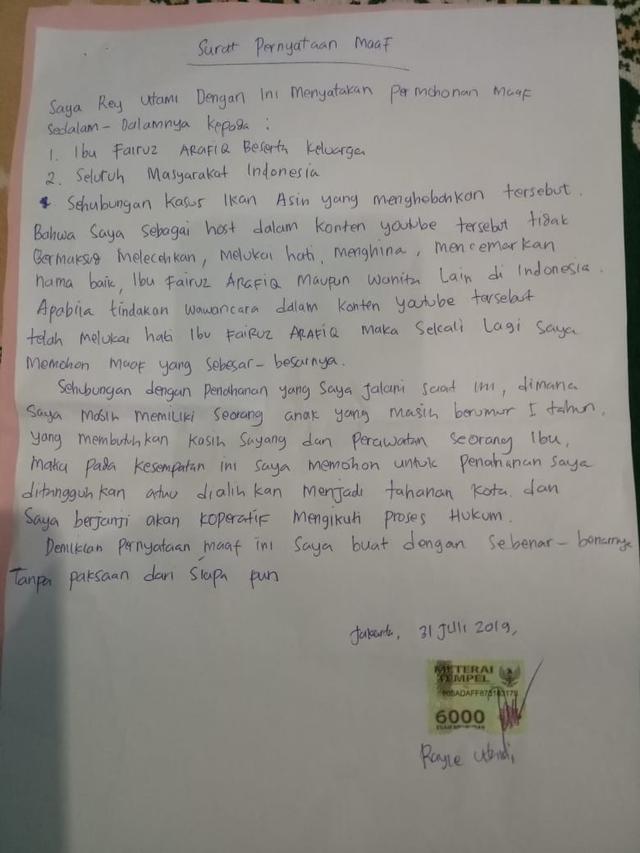 Surat Pernyataan Maaf
Saya Rey Utami Dengan Ini Menyatakan Permohonan Maaf
sedalam-Dalamnya kepada :
1. Ibu Fairuz ARAFIQ Beserta Keluarga
2. Seluruh Masyarakat Indonesia
Sehubungan kasus Ikan Asin yang menghebohkan tersebut.
Bahwa Saya sebagai host dalam konten youtube tersebut tidak
Bermaksud Melecehkan, Melukai hati, Menghina, mencemarkan
nama baik, Ibu Fairuz ARAFIQ Maupun Wanita Lain di Indonesia.
Apabila tindakan wawancara dalam konten youtube tersebut
telah melukai hati Ibu FAIRUZ ARAFIQ Maka Sekali Lagi Saya
Memohon Maaf yang sebesar-besarnya.
Sehubungan dengan Penahanan yang Saya jalani saat ini, dimana
Saya Masih Memiliki Seorang anak yang masih berumur 1 tahun,
yang membutuhkan kasih Sayang dan Perawatan Seorang Ibu,
Maka Pada kesempatan ini Saya memohon untuk Penahanan Saya
ditangguhkan atau dialihkan Menjadi tahanan Kota dan
Saya berjanji akan KOPERATIF Mengikuti Proses Hukum.
Demikian Pernyataan maaf ini Saya buat dengan sebenar-benarnya
Tanpa paksaan dari Siapa pun
Jakarta, 31 Juli 2019,
METERAI
TEMPEL
6000